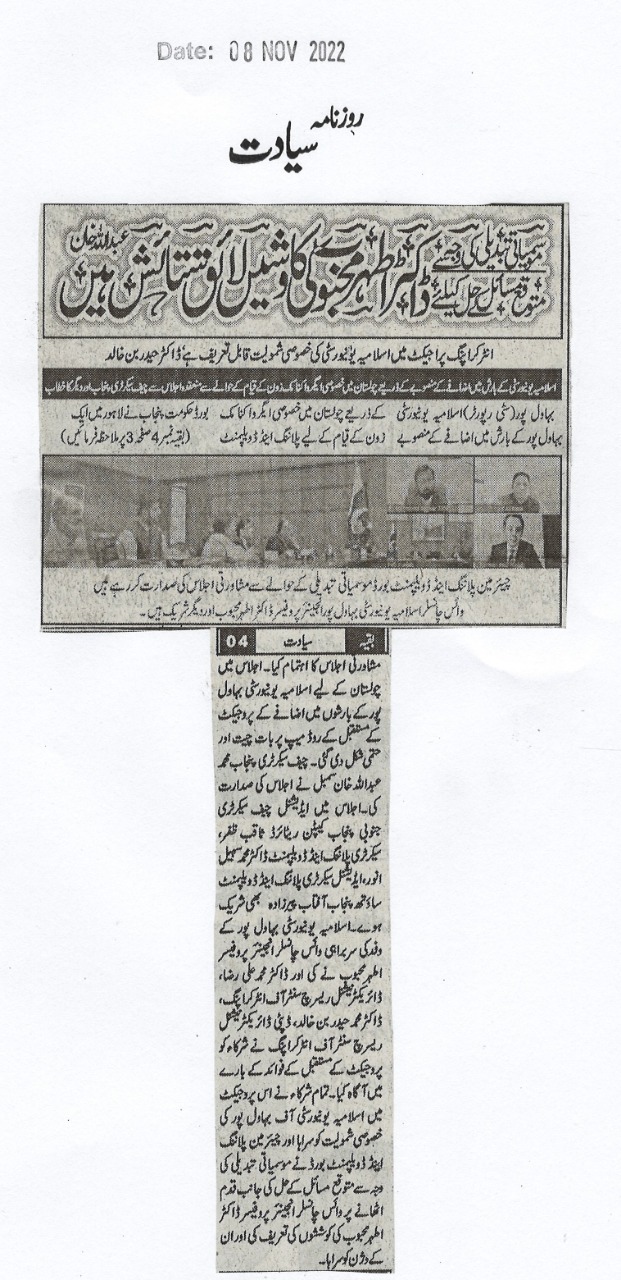 Date: 08 NOV 2022
روزنامہ
سیادت
موسمیاتی تبدیلی کی وجہ سے
متوقع مسائل کے حل کیلئے
ڈاکٹر اطہر محبوب کی کاوشیں لائق ستائش ہیں
عبداللہ خان
انٹر کراپنگ پراجیکٹ میں اسلامیہ یونیورسٹی کی خصوصی شمولیت قابل تعریف ہے، ڈاکٹر حیدر بن خالد
اسلامیہ یونیورسٹی کے بارش میں اضافے کے منصوبے کے ذریعے چولستان میں خصوصی ایگرو اکنامک زون کے قیام کے حوالے سے منعقدہ اجلاس سے چیف سیکرٹری پنجاب اور دیگر کا خطاب
بہاول پور (سٹی رپورٹر) اسلامیہ یونیورسٹی
بہاول پور کے بارش میں اضافے کے منصوبے
کے ذریعے چولستان میں خصوصی ایگرو اکنامک
زون کے قیام کے لیے پلاننگ اینڈ ڈویلپمنٹ
بورڈ حکومت پنجاب نے لاہور میں ایک
(بقیہ نمبر 4 صفحہ 3 پر ملاحظہ فرمائیں)
چیئرمین پلاننگ اینڈ ڈویلپمنٹ بورڈ موسمیاتی تبدیلی کے حوالے سے مشاورتی اجلاس کی صدارت کر رہے ہیں
وائس چانسلر اسلامیہ یونیورسٹی بہاول پور انجینئر پروفیسر ڈاکٹر اطہر محبوب اور دیگر شریک ہیں۔
بقیہ سیادت 04
مشاورتی اجلاس کا اہتمام کیا۔ اجلاس میں
چولستان کے لیے اسلامیہ یونیورسٹی بہاول
پور کے بارشوں میں اضافے کے پروجیکٹ
کے مستقبل کے روڈ میپ پر بات چیت اور
حتمی شکل دی گئی۔ چیف سیکرٹری پنجاب محمد
عبداللہ خان سمبل نے اجلاس کی صدارت
کی۔ اجلاس میں ایڈیشنل چیف سیکرٹری
جنوبی پنجاب کیپٹن ریٹائرڈ ثاقب ظفر،
سیکرٹری پلاننگ اینڈ ڈویلپمنٹ ڈاکٹر محمد سہیل
انور، ایڈیشنل سیکرٹری پلاننگ اینڈ ڈویلپمنٹ
ساؤتھ پنجاب آفتاب پیرزادہ بھی شریک
ہوئے۔ اسلامیہ یونیورسٹی بہاول پور کے
وفد کی سربراہی وائس چانسلر انجینئر پروفیسر
اطہر محبوب نے کی اور ڈاکٹر محمد علی رضا،
ڈائریکٹر نیشنل ریسرچ سنٹر آف انٹر کراپنگ،
ڈاکٹر محمد حیدر بن خالد، ڈپٹی ڈائریکٹر نیشنل
ریسرچ سنٹر آف انٹر کراپنگ نے شرکاء کو
پروجیکٹ کے مستقبل کے فوائد کے بارے
میں آگاہ کیا۔ تمام شرکاء نے اس پروجیکٹ
میں اسلامیہ یونیورسٹی آف بہاول پور کی
خصوصی شمولیت کو سراہا اور چیئرمین پلاننگ
اینڈ ڈویلپمنٹ بورڈ نے موسمیاتی تبدیلی کی
وجہ سے متوقع مسائل کے حل کی جانب قدم
اٹھانے پر وائس چانسلر انجینئر پروفیسر ڈاکٹر
اطہر محبوب کی کوششوں کی تعریف کی اور ان
کے وژن کو سراہا۔